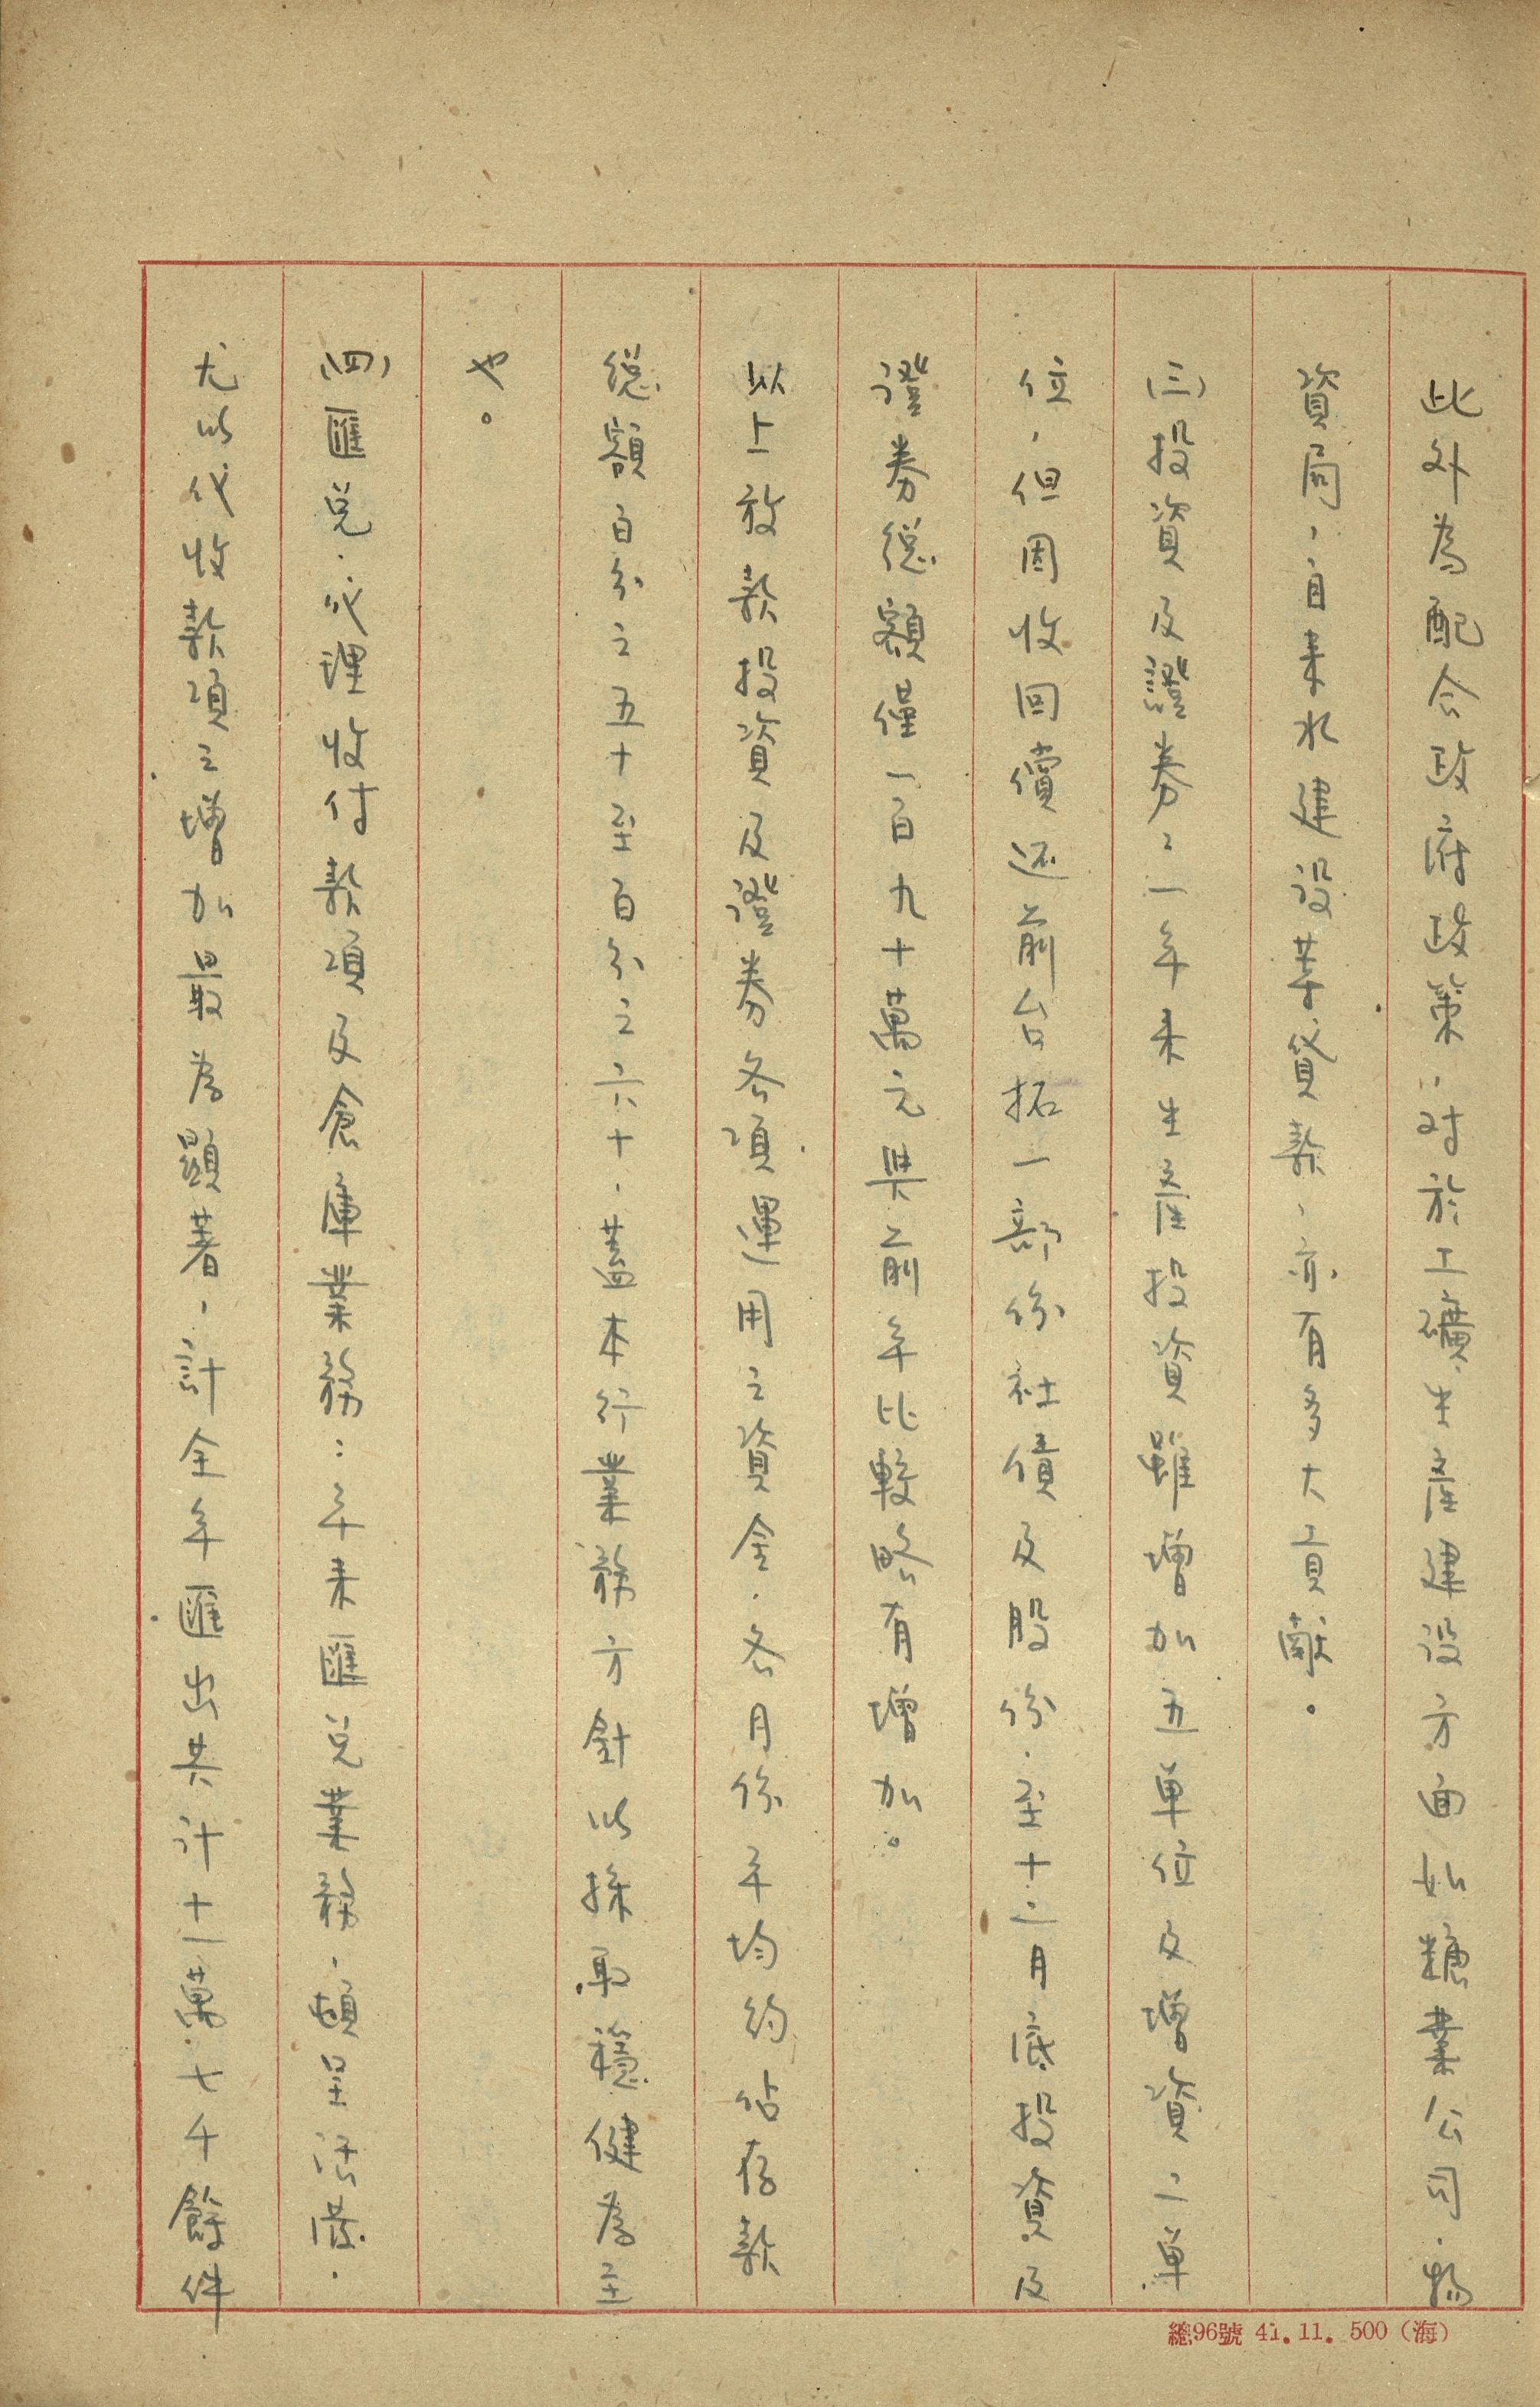 此外為配合政府政策，对於工礦生產建設方面如糖業公司．物
資局，自来水建設等貸款，亦有多大貢献。
(三)投資及證券：一年来生產投資雖增加五单位及增資二单
位，但因收回償还前台拓一部份社債及股份．至十二月底投資及
證券總額僅一百九十萬元與前年比較略有增加。
以上放款投資及證券各項運用之資金．各月份平均約佔存款
總額百分之五十至百分之六十．蓋本行業務方針以採取穩健為主
也。
(四)匯兌．代理收付款項及倉庫業務：年来匯兌業務，頗呈活潑．
尤以代收款項之增加最為顯著，計全年匯出共计十一萬七千餘件
總96號 41.11.500（海）